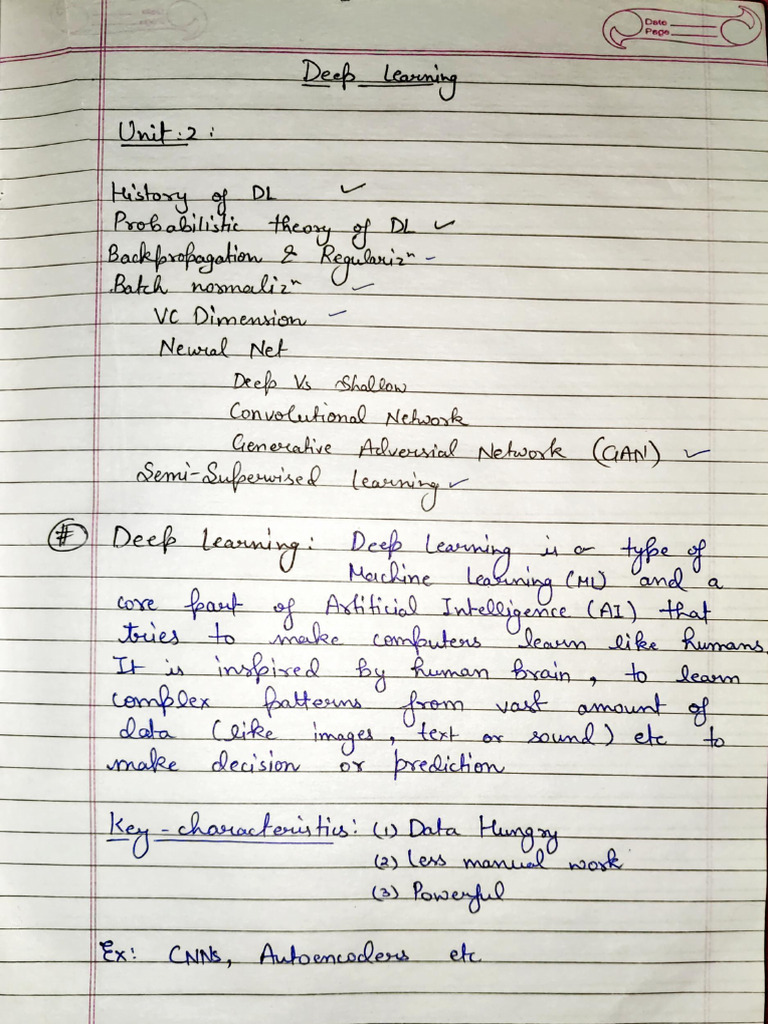 Date
Page
Deep Learning
Unit:2:
History of DL ✓
Probabilistic theory of DL ✓
Backpropagation & Regularizⁿ -
Batch normalizⁿ ✓
VC Dimension -
Neural Net
Deep Vs Shallow
Convolutional Network
Generative Adversial Network (GAN) ✓
Semi-Supervised Learning ✓
# Deep Learning: Deep Learning is a type of
Machine Learning (ML) and a
core part of Artificial Intelligence (AI) that
tries to make computers learn like humans.
It is inspired by human brain, to learn
complex patterns from vast amount of
data (like images, text or sound) etc to
make decision or prediction
Key-characteristics: (1) Data Hungry
(2) Less manual work
(3) Powerful
Ex: CNNs, Autoencoders etc